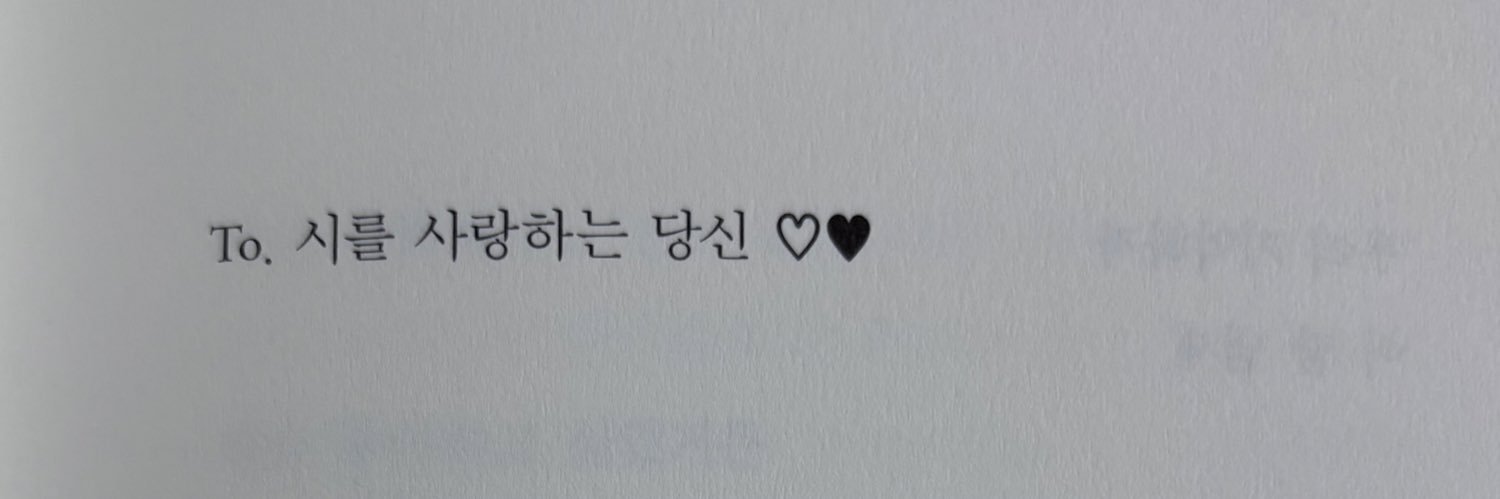 To. 시를 사랑하는 당신 ♡♥